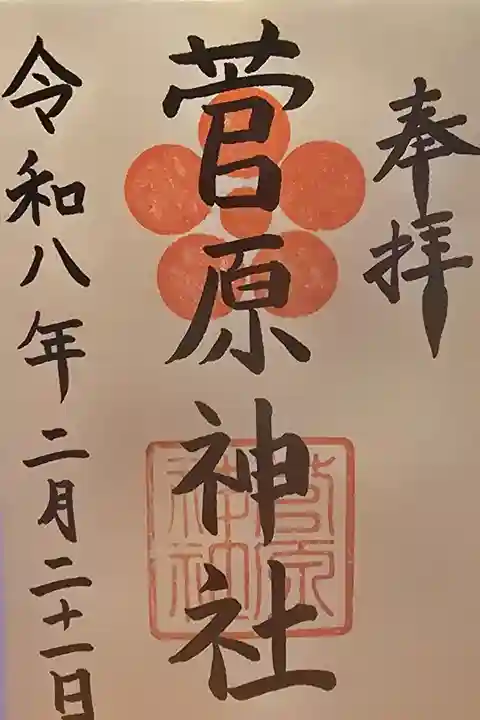 奉拝
菅原神社
菅原
神社
令和八年二月二十一日